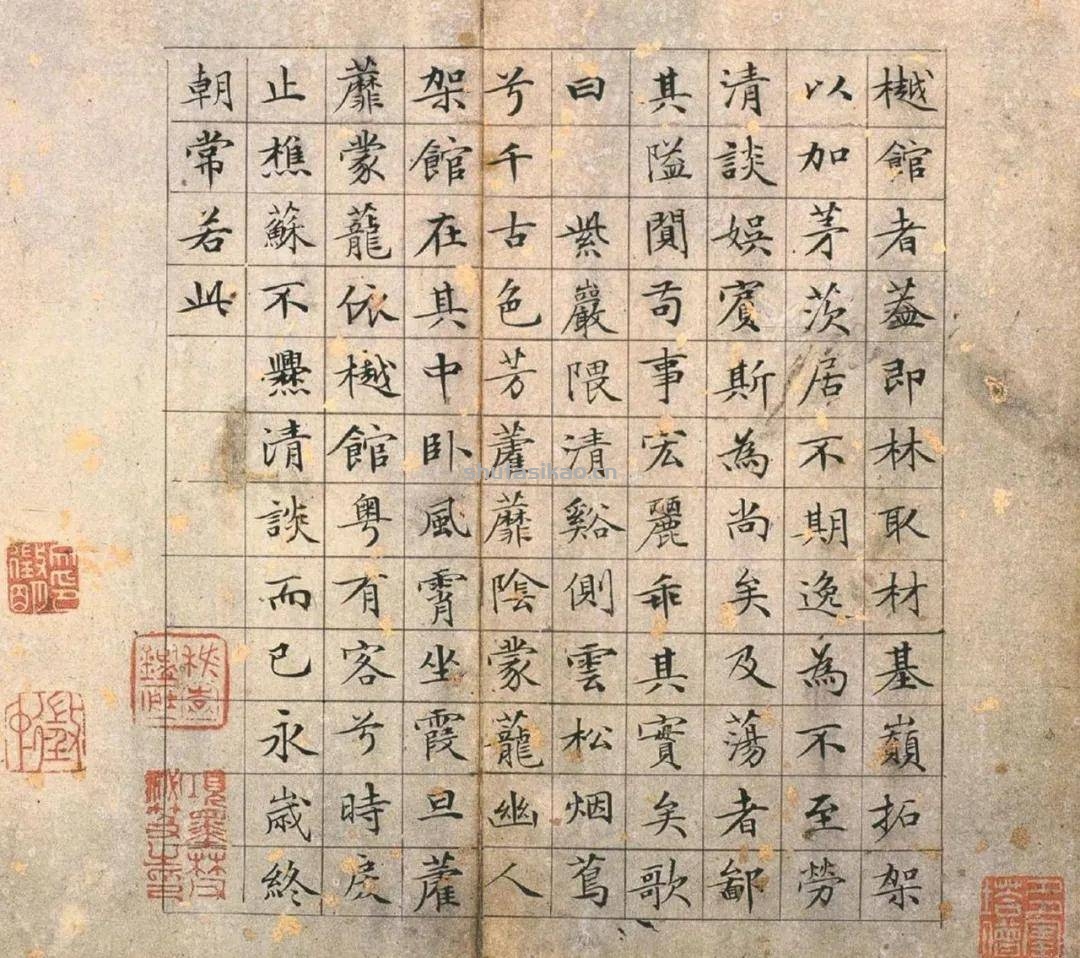 樾館者葢即林取材基巔拓架
以加茅茨居不期逸為不至勞
清談娛賓斯為尚矣及蕩者鄙
其隘闃苟事宏麗乖其實矣歌
曰 紫巖隈清谿側雲松烟蔦
兮千古色芳藿蘼陰蒙蘢幽人
架館在其中卧風霄坐霞旦藿
蘼蒙蘢依樾館粵有客兮時戾
止樵蘇不爨清談而已永歲終
朝常若此
shufasikao.cn